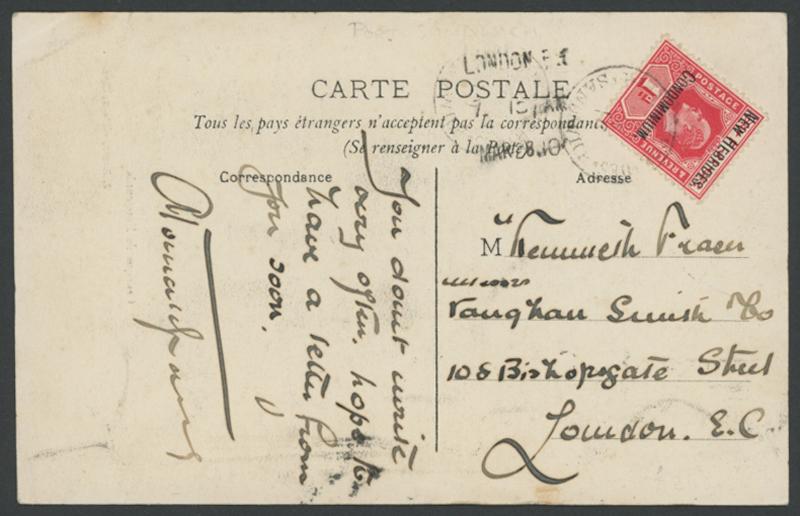 LONDON E.C
MAR 28 10
POSTAGE
& REVENUE
NEW HEBRIDES.
CONDOMINIUM.
CARTE POSTALE
Tous les pays étrangers n'acceptent pas la correspondance
(Se renseigner à la Poste)
Correspondance
Adresse
You dont write
very often. hope to
have a letter from
you soon.
M Kenneth Fraser
Messrs
Vaughan Smith & Co
108 Bishopsgate Street
London. E.C